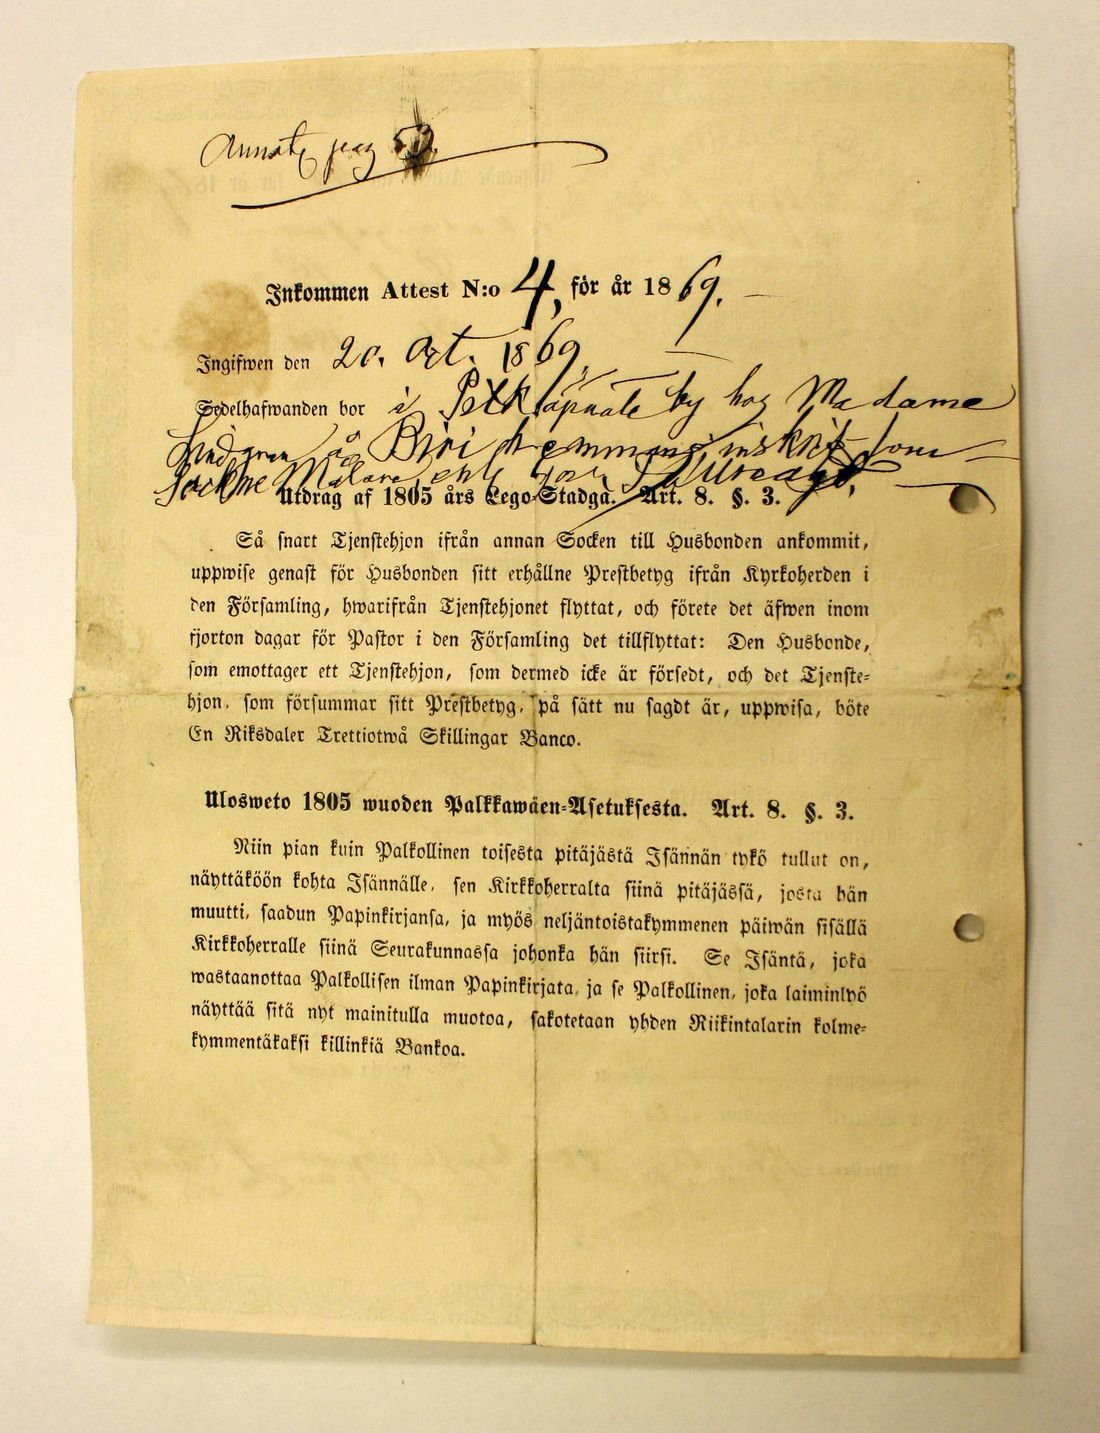 pag
Inkommen Attest N:o 4, för år 1869.
Ingifwen den 20. Oct. 1869
Sedelhafwanden bor i by hos Madame
å hemman som
Sockne
Utdrag af 1805 års Lego-Stadga. Art. 8. §. 3.
Så snart Tjenstehjon ifrån annan Socken till Husbonden ankommit,
uppwise genast för Husbonden sitt erhållne Prestbetyg ifrån Kyrkoherden i
den Församling, hwarifrån Tjenstehjonet flyttat, och förete det äfwen inom
fjorton dagar för Pastor i den Församling det tillflyttat: Den Husbonde,
som emottager ett Tjenstehjon, som dermed icke är försedt, och det Tjenste-
hjon, som försummar sitt Prestbetyg, på sätt nu sagdt är, uppwisa, böte
En Riksdaler Trettiotwå Skillingar Banco.
Ulosweto 1805 wuoden Palkkawäen-Asetuksesta. Art. 8. §. 3.
Niin pian kuin Palkollinen toisesta pitäjästä Isännän tykö tullut on,
näyttäköön kohta Isännälle, sen Kirkkoherralta siinä pitäjässä, josta hän
muutti, saadun Papinkirjansa, ja myös neljäntoistakymmenen päiwän sisällä
Kirkkoherralle siinä Seurakunnassa johonka hän siirsi. Se Isäntä, joka
wastaanottaa Palkollisen ilman Papinkirjata, ja se Palkollinen, joka laiminlyö
näyttää sitä nyt mainitulla muotoa, sakotetaan yhden Riikintalarin kolme-
kymmentäkaksi killinkiä Bankoa.